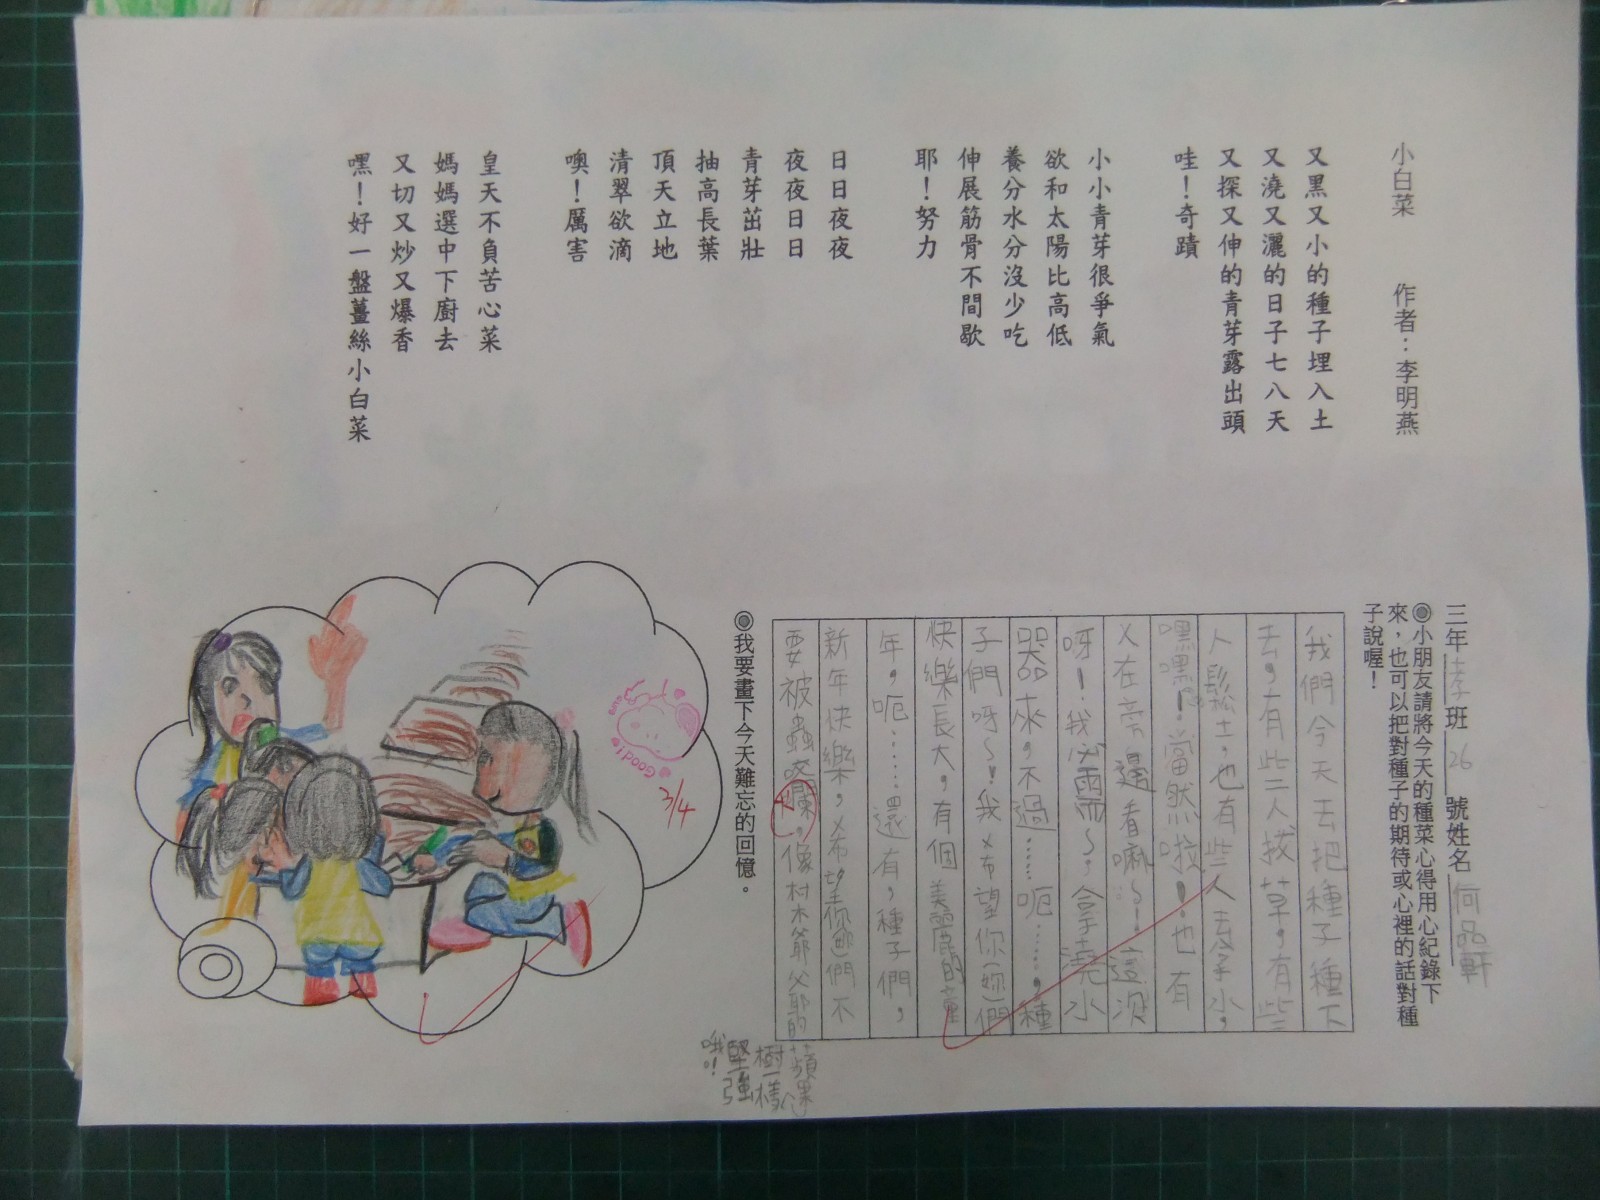 小白菜 作者：李明燕
又黑又小的種子埋入土
又澆又灑的日子七八天
又探又伸的青芽露出頭
哇！奇蹟
小小青芽很爭氣
欲和太陽比高低
養分水分沒少吃
伸展筋骨不間歇
耶！努力
日日夜夜
夜夜日日
青芽茁壯
抽高長葉
頂天立地
清翠欲滴
噢！厲害
皇天不負苦心菜
媽媽選中下廚去
又切又炒又爆香
嘿！好一盤薑絲小白菜
三年孝班26號姓名何品軒
◎小朋友請將今天的種菜心得用心紀錄下
來，也可以把對種子的期待或心裡的話對種
子說喔！
我們今天去把種子種下
去，有些人拔草，有些
人鬆土，也有些人去拿水，
嘿嘿！當然啦！也有
人在旁邊看嘛～！這次
呀！我必需～，拿澆水
器來，不過……呃……，種
子們呀～！我希望你(妳)們
快樂長大，有個美麗的童
年，呃……還有，種子們，
新年快樂，希望你(妳)們不
要被蟲咬爛，像村木爺爺的
蘋果
樹一樣
堅強
哦！
◎我要畫下今天難忘的回憶。
Goodie
3/4